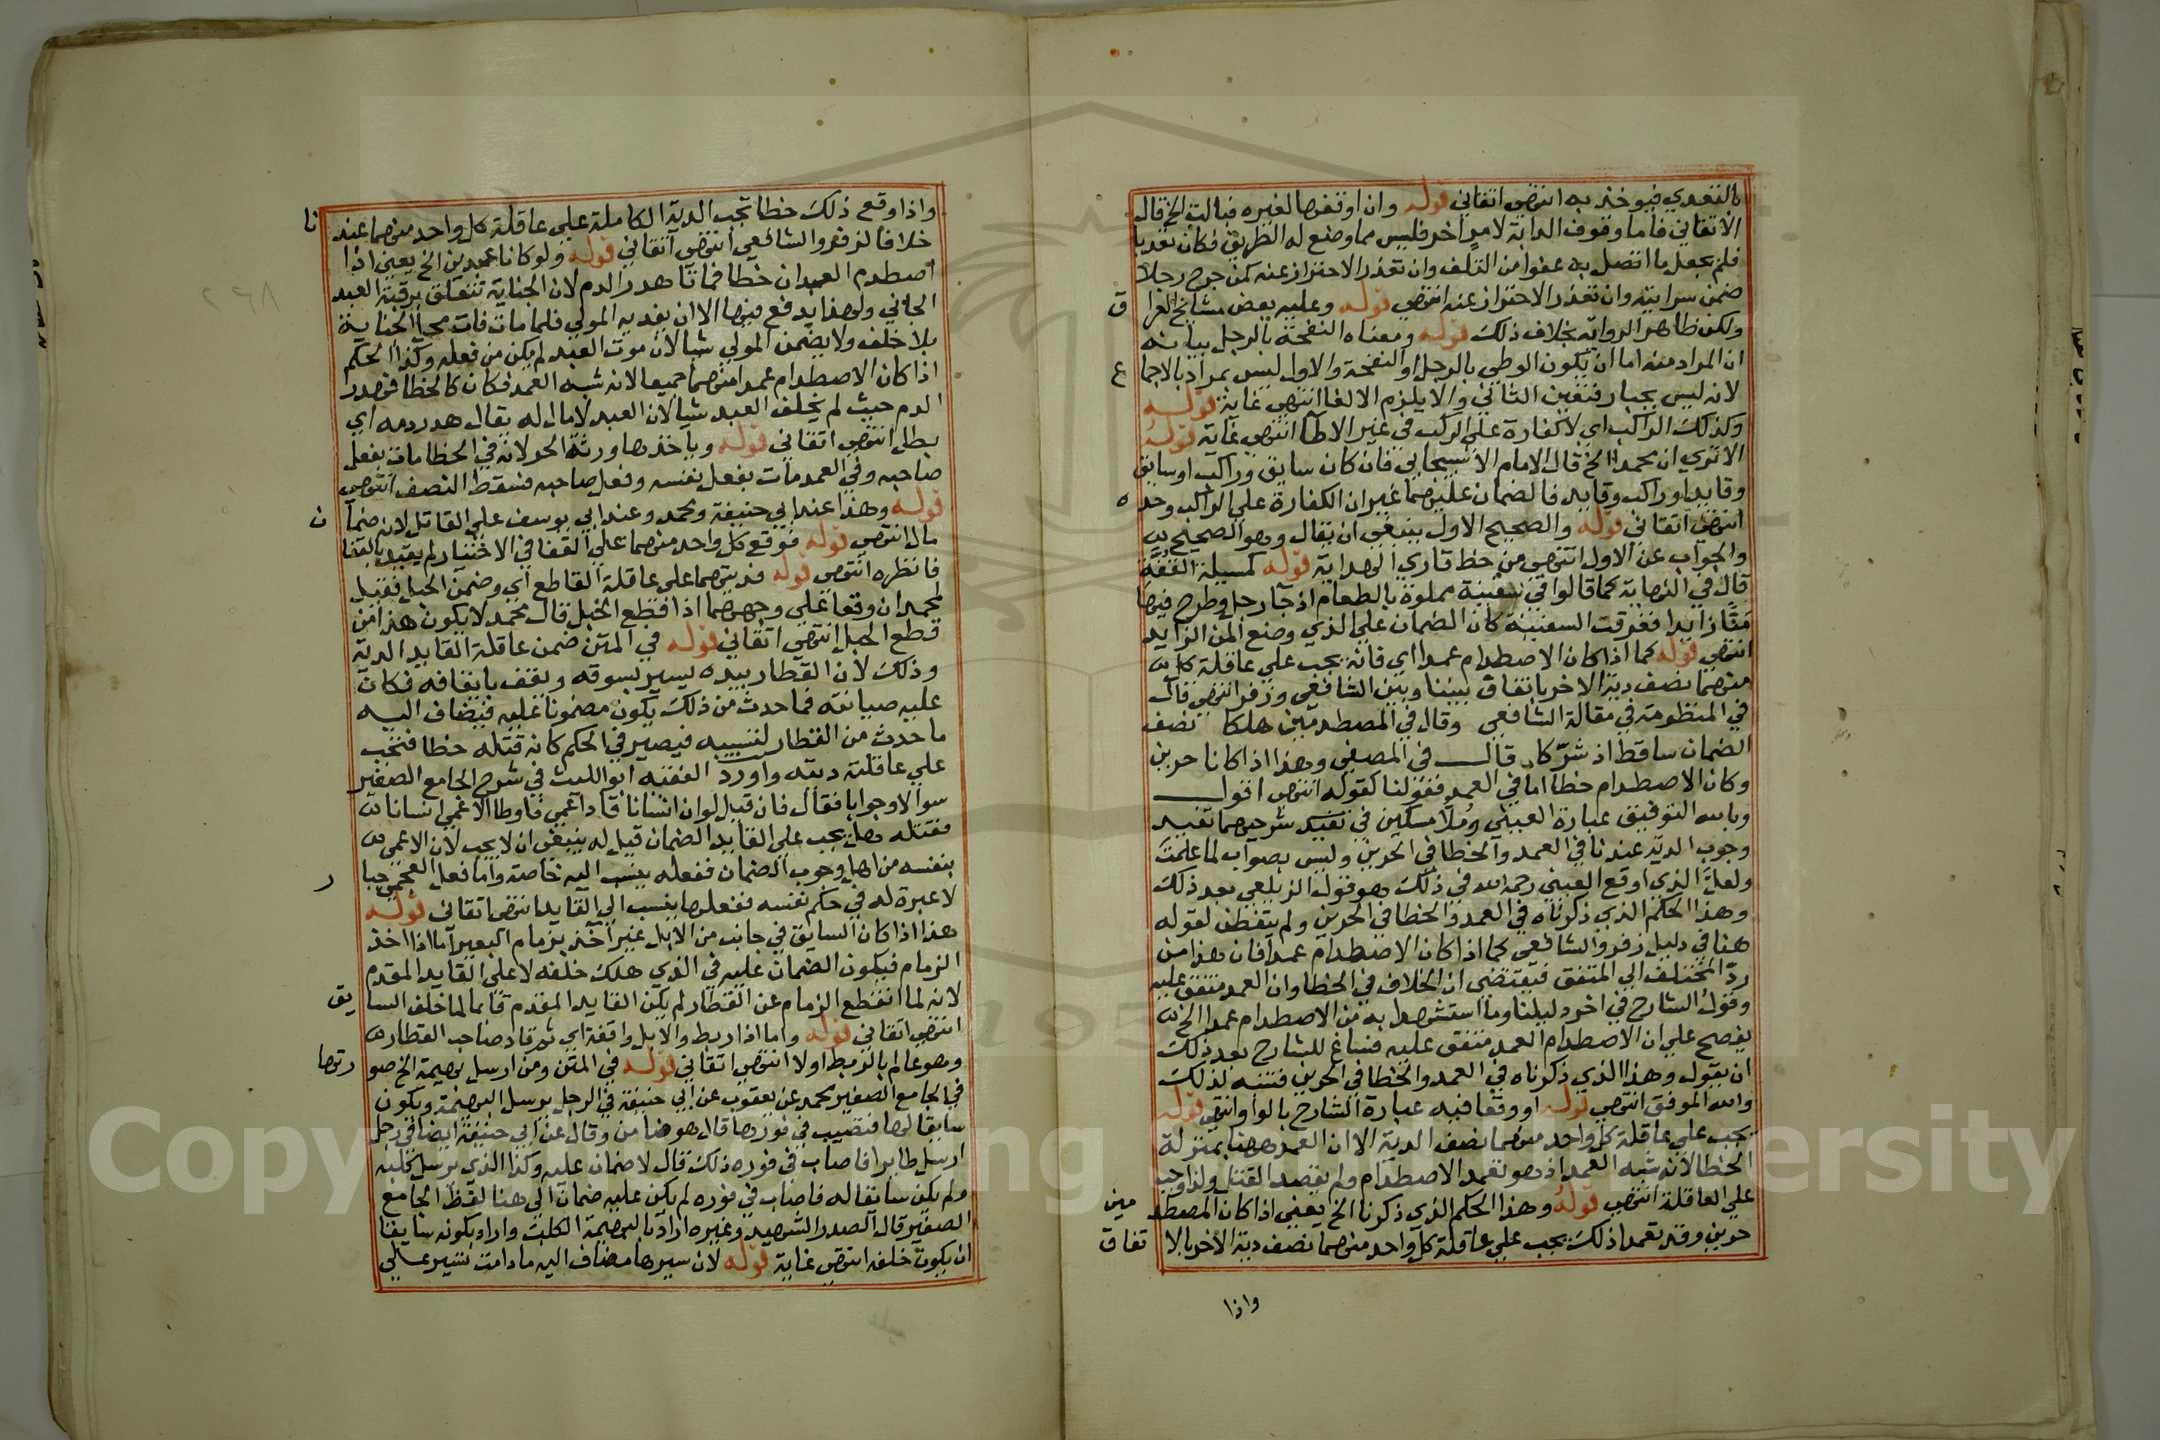 بالتعدي فيوخذ به انتهى اتقاني قوله وان اوقفها لغيره فبالت الخ قال
الاتقاني فاما وقوف الدابة لامر اخر فليس مما وضع له الطريق فكان تعديا
فلم يجعل ما اتصل به عفوا من التلف وان تعذر الاحتراز عنه كمن جرح رجلا
ضمن سرايته وان تعذر الاحتراز عنه انتهى قوله وعليه بعض مشايخ العرا ق
ولكن ظاهر الرواية بخلاف ذلك قوله ومعناه النفحة بالرجل بيانه
ان المراد منه اما ان يكون الوطي بالرجل او النفحة والاول ليس بمراد بالاجما ع
لانه ليس بجبار فتعين الثاني والا يلزم الالغا انتهى غاية قوله
وكذلك الراكب اي لا كفارة على الراكب في غير الايطا انتهى غاية قوله
الا تري ان محمدا الخ قال الامام الاسبيجابي فان كان سايق وراكب او سايق
وقايد او راكب وقايد فالضمان عليهما غير ان الكفارة على الراكب وحد ه
انتهى اتقاني قوله والصحيح الاول ينبغي ان يقال وهو الصحيح
والجواب عن الاول انتهى من خط قاري الهداية قوله كمسيلة
قال في النهاية كما قالوا في سفينة مملوة بالطعام اذ جا رجل وطرح فيها
منا زايدا فغرقت السفينة كان الضمان على الذي وضع المن الزايد
انتهى قوله كما اذا كان الاصطدام عمدا اي فانه يجب علي عاقلة كل
منهما نصف دية الاخر باتفاق بيننا وبين الشافعي وزفر انتهى قال
في المنظومة في مقالة الشافعي وقال في المصطدمين هلكا نصف
الضمان ساقط اذ شركا قال في المصفى وهذا اذا كانا حرين
وكان الاصطدام خطا اما في العمد فقولنا كقوله انتهى اقول
وبالله التوفيق عبارة العيني وملا مسكين في شرحيهما تفيد
وجوب الدية عندنا في العمد والخطا في الحرين وليس بصواب لما علمت
ولعل الذي اوقع العيني رحمه الله في ذلك هو قول الزيلعي بعد ذلك
وهذا الحكم الذي ذكرناه في العمد والخطا في الحرين ولم يتفطن لقوله
هنا في دليل زفر والشافعي كما اذا كان الاصطدام عمدا فان هذا من
رد المختلف الي المتفق فيقتضي ان الخلاف في الخطا وان العمد متفق عليه
وقول الشارح في اخر دليلنا وما استشهد به من الاصطدام عمدا الخ
يفصح علي ان الاصطدام العمد متفق عليه فساغ للشارح بعد ذلك
ان يقول وهذا الذي ذكرناه في العمد والخطا في الحرين فتنبه لذلك
والله الموفق انتهى قوله او وقعا فيه عبارة الشارح بالواو انتهى قوله
يجب علي عاقلة كل واحد منهما نصف الدية الا ان العمد ههنا بمنزلة
الخطا لانه شبه العمد اذ هو تعمد الاصطدام ولم يقصد القتل ولذا وجب
علي العاقلة انتهى قوله وهذا الحكم الذي ذكرنا الخ يعني اذا كان المصطد مين
حرين وقد تعمدا ذلك يجب علي عاقلة كل واحد منهما نصف دية الاخر بالا تفاق
واذا
واذا وقع ذلك خطا تجب الدية الكاملة علي عاقلة كل واحد منهما عند نا
خلافا لزفر والشافعي انتهى اتقاني قوله ولو كانا عبدين الخ يعني اذا
اصطدم العبدان خطا فماتا هدر الدم لان الجناية تتعلق برقبة العبد
الجاني ولهذا يدفع فيها الا ان يفديه المولي فلما مات فات محل الجناية
بلا خلف ولا يضمن المولي شيا لان موت العبد لم يكن من فعله وكذا الحكم
اذا كان الاصطدام عمدا منهما جميعا لانه شبه العمد فكان كالخطا فهدر
الدم حيث لم يخلف العبد شيا لان العبد لا مال له يقال هدر دمه اي
بطل انتهى اتقاني قوله وياخذها ورثة الحر لانه في الخطا مات بفعل
صاحبه وفي العمد مات بفعل نفسه وفعل صاحبه فسقط النصف انتهى
قوله وهذا عند ابي حنيفة ومحمد وعند ابي يوسف علي القاتل لانه ضما ن
مال انتهى قوله فوقع كل واحد منهما علي القفا في الاختيار لم يقيد بالقفا
فانظره انتهى قوله فديتهما على عاقلة القاطع اي وضمن الحبل فقيل
لمحمد ان وقعا علي وجههما اذا قطع الحبل قال محمد لا يكون هذا من
قطع الحبل انتهى اتقاني قوله في المتن ضمن عاقلة القايد الدية
وذلك لان القطار بيده يسير بسوقه ويقف بايقافه فكان
عليه صيانته فما حدث من ذلك يكون مضمونا عليه فيضاف اليه
ما حدث من القطار لتسببه فيصير في الحكم كانه قتله خطا فتجب
علي عاقلته ديته واورد الفقيه ابو الليث في شرح الجامع الصغير
سوالا وجوابا فقال فان قيل لو ان انسانا قاد اعمي فاوطا الاعمي انسانا
فقتله هل يجب علي القايد الضمان قيل له ينبغي ان لا يجب لان الاعمى
بنفسه من اهل وجوب الضمان ففعله ينسب اليه خاصة واما فعل العجمي جبا ر
لا عبرة له في حكم نفسه ففعلها ينسب الي القايد انتهى اتقاني قوله
هذا اذا كان السايق في جانب من الابل غير اخذ بزمام البعير اما اذا اخذ
الزمام فيكون الضمان عليه في الذي هلك خلفه لا علي القايد المقدم
لانه لما انقطع الزمام عن القطار لم يكن القايد المقدم قايما لما خلف السا يق
انتهى اتقاني قوله واما اذا ربط والابل واقفة اي ثم قاد صاحب القطار
وهو عالم بالربط اولا انتهى اتقاني قوله في المتن ومن ارسل بهيمة الخ صو رتها
في الجامع الصغير محمد عن يعقوب عن ابي حنيفة في الرجل يرسل البهيمة ويكون
سايقا لها فتصيب في فورها قال هو ضامن وقال عن ابي حنيفة ايضا في رجل
ارسل طايرا فاصاب في فوره ذلك قال لا ضمان عليه وكذا الذي يرسل كلبه
ولم يكن سايقا له فاصاب في فوره لم يكن عليه ضمان الي هنا لفظ الجامع
الصغير قال الصدر الشهيد وغيره اراد بالبهيمة الكلب واراد بكونه سايقا
ان يكون خلفه انتهى غاية قوله لان سيرها مضاف اليه ما دامت تسير علي